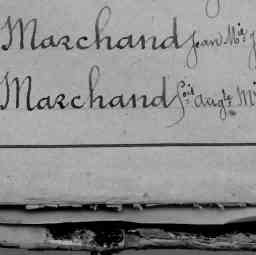 Marchand Jean Mie J
Marchand Foid Augte M